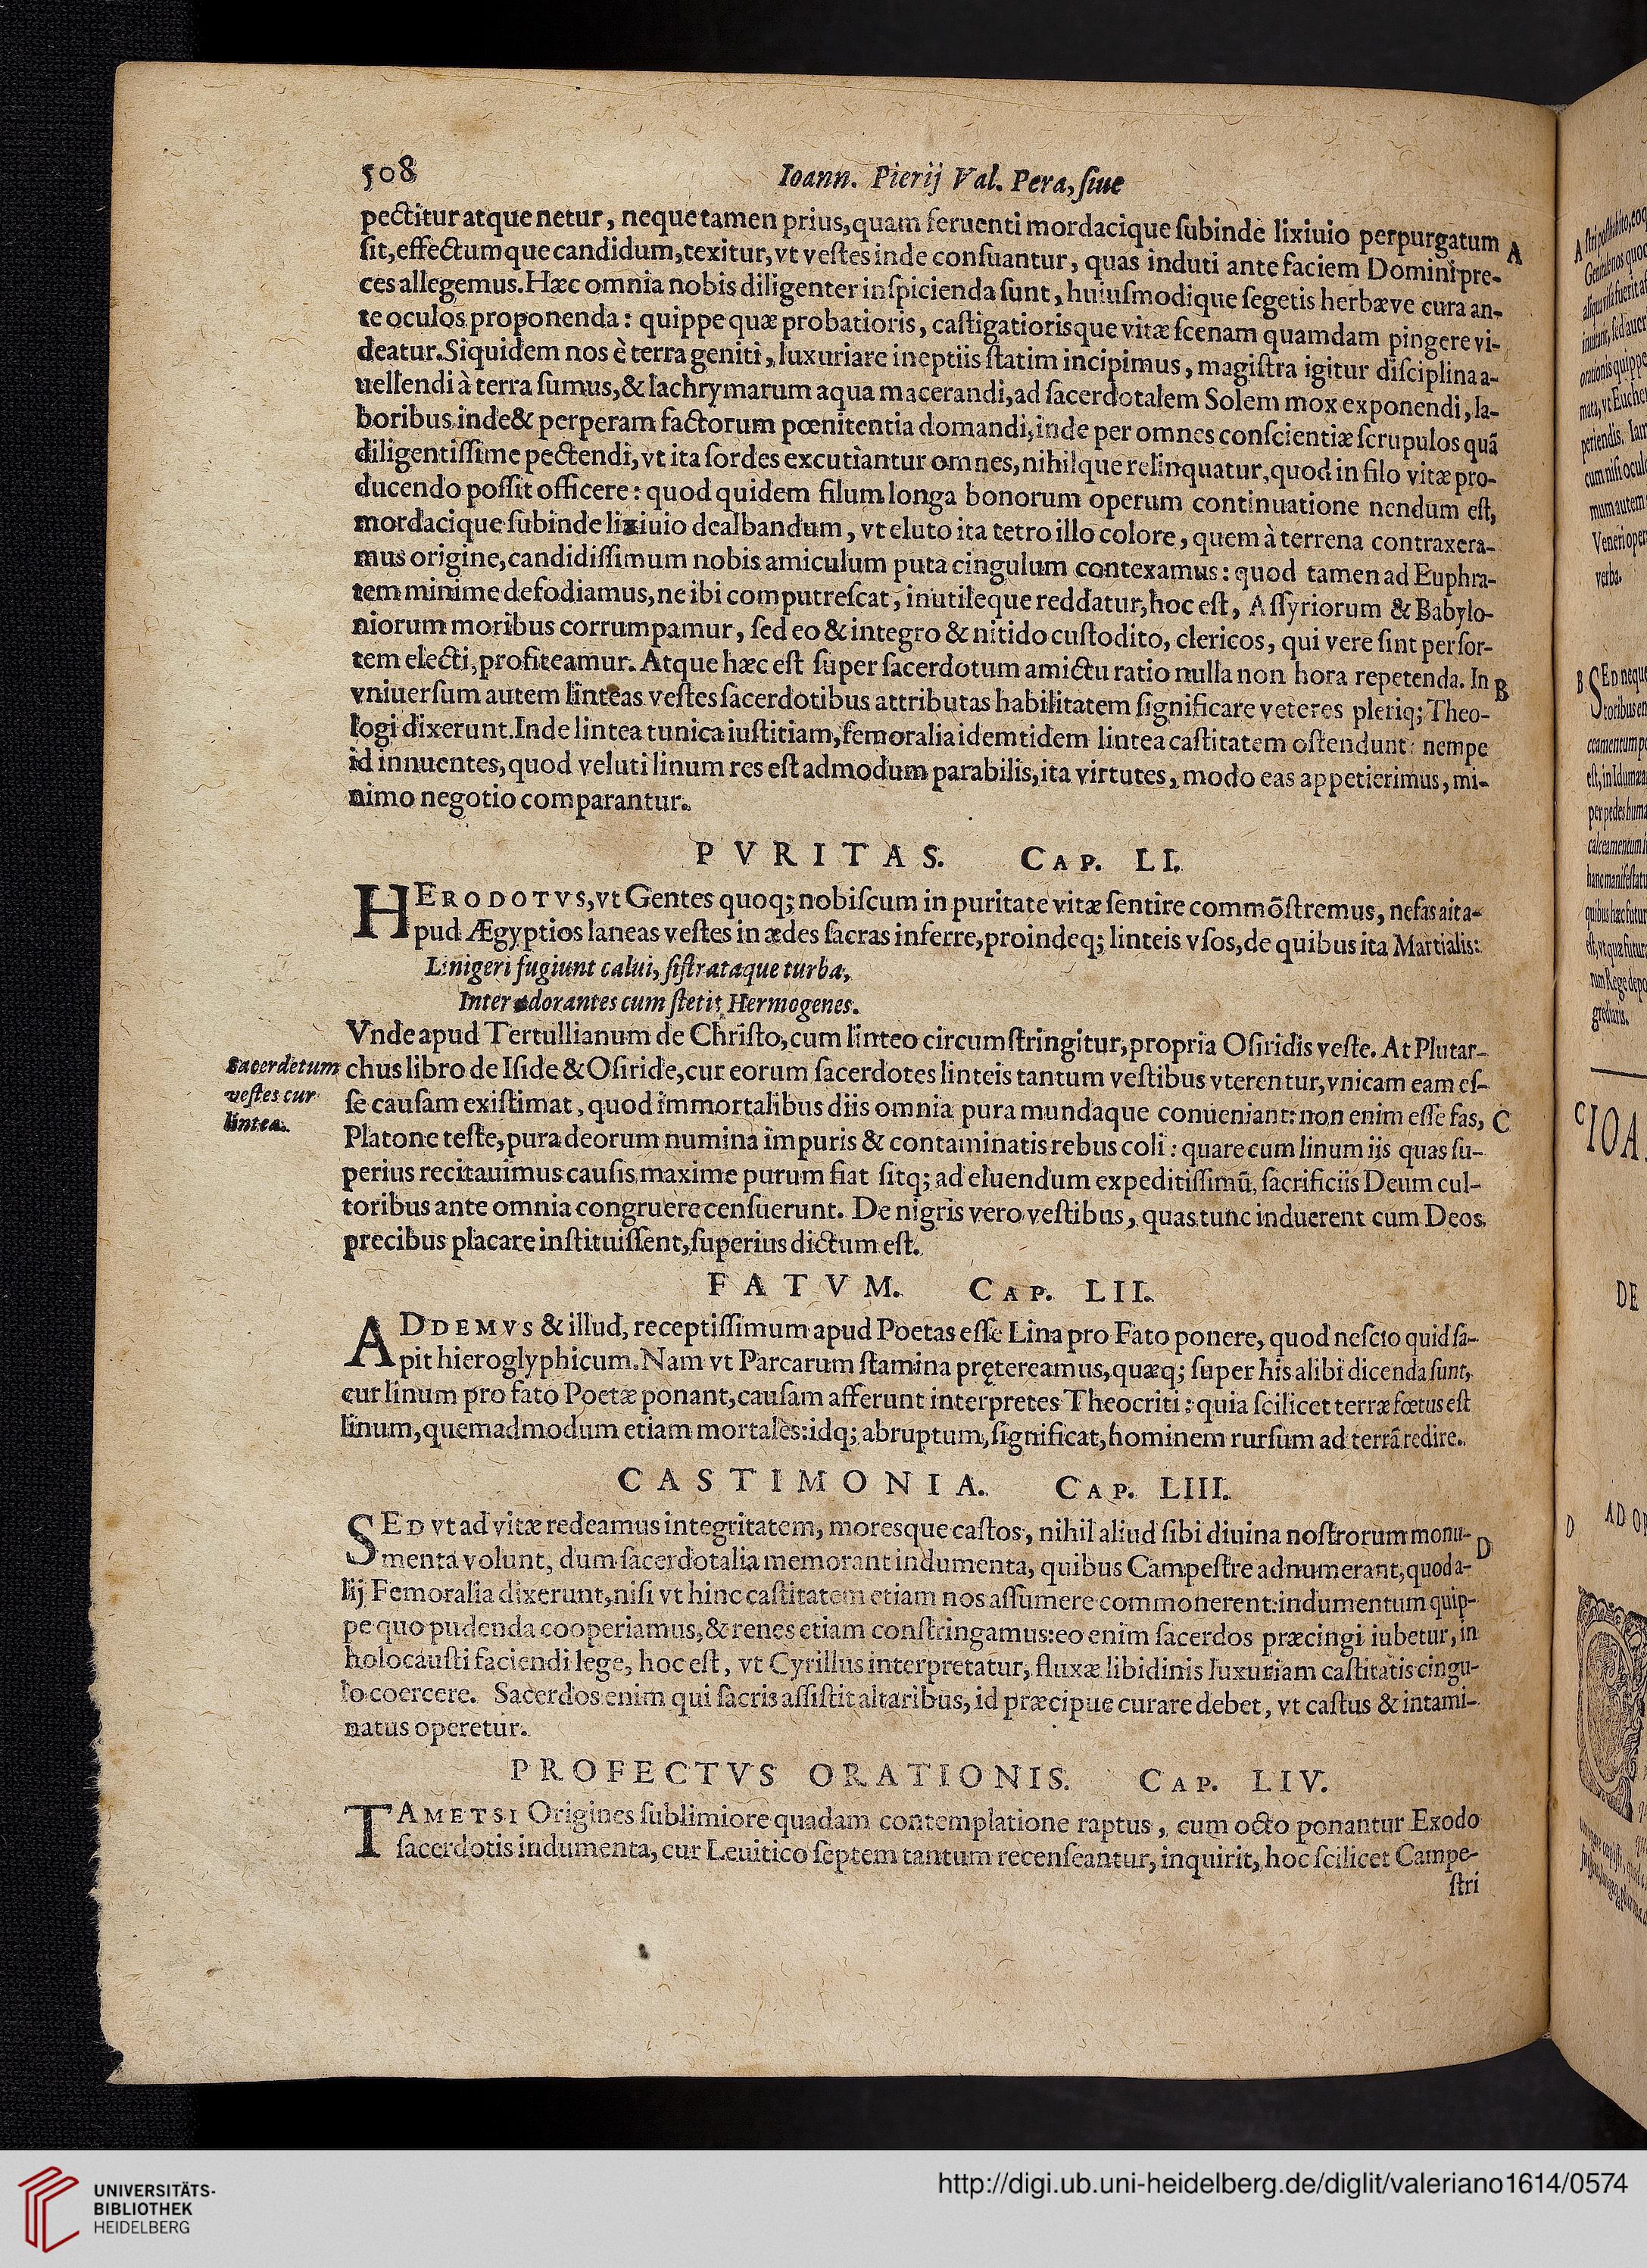 508
Ioann. Pierij Val. Pera, ſiue
pectitur atque netur, neque tamen prius, quam feruenti mordacique ſubinde lixiuio perpurgatum A
ſit, effectumque candidum, texitur, vt veſtes inde conſuantur, quas induti ante faciem Domini pre-
ces allegemus. Hæc omnia nobis diligenter inſpicienda ſunt, huiuſmodique ſegetis herbæve cura an-
te oculos proponenda: quippe quæ probatioris, caſtigatiorisque vitæ ſcenam quamdam pingere vi-
deatur. Siquidem nos è terra geniti, luxuriare ineptiis ſtatim incipimus, magiſtra igitur diſciplina a-
uellendi à terra ſumus, & lachrymarum aqua macerandi, ad ſacerdotalem Solem mox exponendi, la-
boribus inde & perperam factorum pœnitentia domandi, inde per omnes conſcientiæ ſcrupulos quã
diligentiſſime pectendi, vt ita ſordes excutiantur omnes, nihilque relinquatur, quod in filo vitæ pro-
ducendo poſſit officere: quod quidem filum longa bonorum operum continuatione nendum eſt,
mordacique ſubinde lixiuio dealbandum, vt eluto ita tetro illo colore, quem à terrena contraxera-
mus origine, candidiſſimum nobis amiculum puta cingulum contexamus: quod tamen ad Euphra-
tem minime defodiamus, ne ibi computreſcat, inutileque reddatur, hoc eſt, Aſſyriorum & Babylo-
niorum moribus corrumpamur, ſed eo & integro & nitido cuſtodito, clericos, qui vere ſint per ſor-
tem electi, profiteamur. Atque hæc eſt ſuper ſacerdotum amictu ratio nulla non hora repetenda. In B
vniuerſum autem linteas veſtes ſacerdotibus attributas habilitatem ſignificare veteres pleriq; Theo-
logi dixerunt. Inde lintea tunica iuſtitiam, femoralia idemtidem lintea caſtitatem oſtendunt: nempe
id innuentes, quod veluti linum res eſt admodum parabilis, ita virtutes, modo eas appetierimus, mi-
nimo negotio comparantur.
PVRITAS. CAP. LI.
HERODOTVS, vt Gentes quoq; nobiſcum in puritate vitæ ſentire commõſtremus, nefas ait a-
pud Ægyptios laneas veſtes in ædes ſacras inferre, proindeq; linteis vſos, de quibus ita Martialis:
Linigeri fugiunt calui, ſiſtrataque turba,
Inter adorantes cum ſtetit Hermogenes.
Vnde apud Tertullianum de Chriſto, cum linteo circumſtringitur, propria Oſiridis veſte. At Plutar-
Sacerdotum
veſtes cur
lintea.
chus libro de Iſide & Oſiride, cur eorum ſacerdotes linteis tantum veſtibus vterentur, vnicam eam eſ-
ſe cauſam exiſtimat, quod immortalibus diis omnia pura mundaque conueniant: non enim eſſe fas, C
Platone teſte, pura deorum numina impuris & contaminatis rebus coli: quare cum linum iis quas ſu-
perius recitauimus cauſis maxime purum fiat ſitq; ad eluendum expeditiſſimũ, ſacrificiis Deum cul-
toribus ante omnia congruere cenſuerunt. De nigris vero veſtibus, quas tunc induerent cum Deos
precibus placare inſtituiſſent, ſuperius dictum eſt.
FATVM. CAP. LII.
ADDEMVS & illud, receptiſſimum apud Poetas eſſe Lina pro Fato ponere, quod neſcio quid ſa-
pit hieroglyphicum. Nam vt Parcarum ſtamina prętereamus, quæq; ſuper his alibi dicenda ſunt,
cur linum pro fato Poetæ ponant, cauſam afferunt interpretes Theocriti: quia ſcilicet terræ fœtus eſt
linum, quemadmodum etiam mortales: idq; abruptum, ſignificat, hominem rurſum ad terrã redire.
CASTIMONIA. CAP. LIII.
SED vt ad vitæ redeamus integritatem, moresque caſtos, nihil aliud ſibi diuina noſtrorum monu- D
menta volunt, dum ſacerdotalia memorant indumenta, quibus Campeſtre adnumerant, quod a-
lij Femoralia dixerunt, niſi vt hinc caſtitatem etiam nos aſſumere commonerent: indumentum quip-
pe quo pudenda cooperiamus, & renes etiam conſtringamus: eo enim ſacerdos præcingi iubetur, in
holocauſti faciendi lege, hoc eſt, vt Cyrillus interpretatur, fluxæ libidinis luxuriam caſtitatis cingu-
lo coercere. Sacerdos enim qui ſacris aſſiſtit altaribus, id præcipue curare debet, vt caſtus & intami-
natus operetur.
PROFECTVS ORATIONIS. CAP. LIV.
TAMETSI Origines ſublimiore quadam contemplatione raptus, cum octo ponantur Exodo
ſacerdotis indumenta, cur Leuitico ſeptem tantum recenſeantur, inquirit, hoc ſcilicet Campe-
ſtri
UNIVERSITÄTS-
BIBLIOTHEK
HEIDELBERG
http://digi.ub.uni-heidelberg.de/diglit/valeriano1614/0574